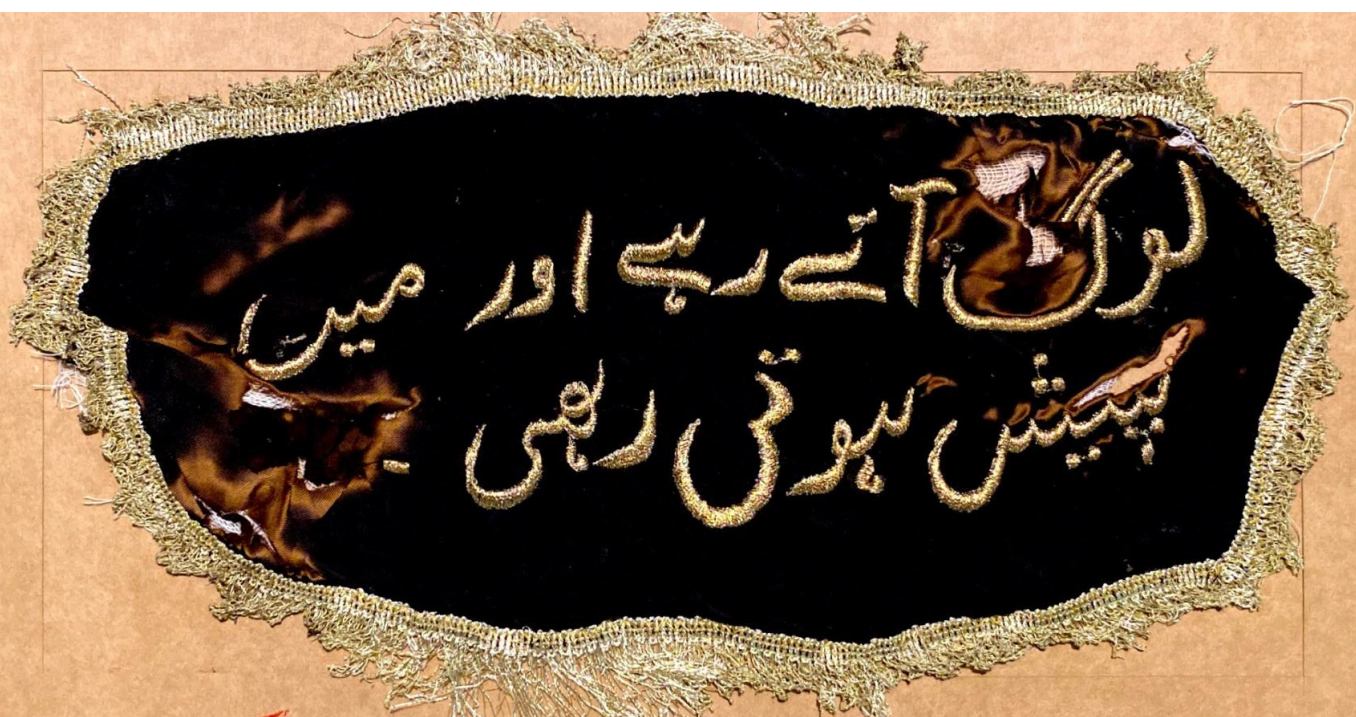 لوگ آتے رہے اور میں
پیش ہوتی رہی ۔